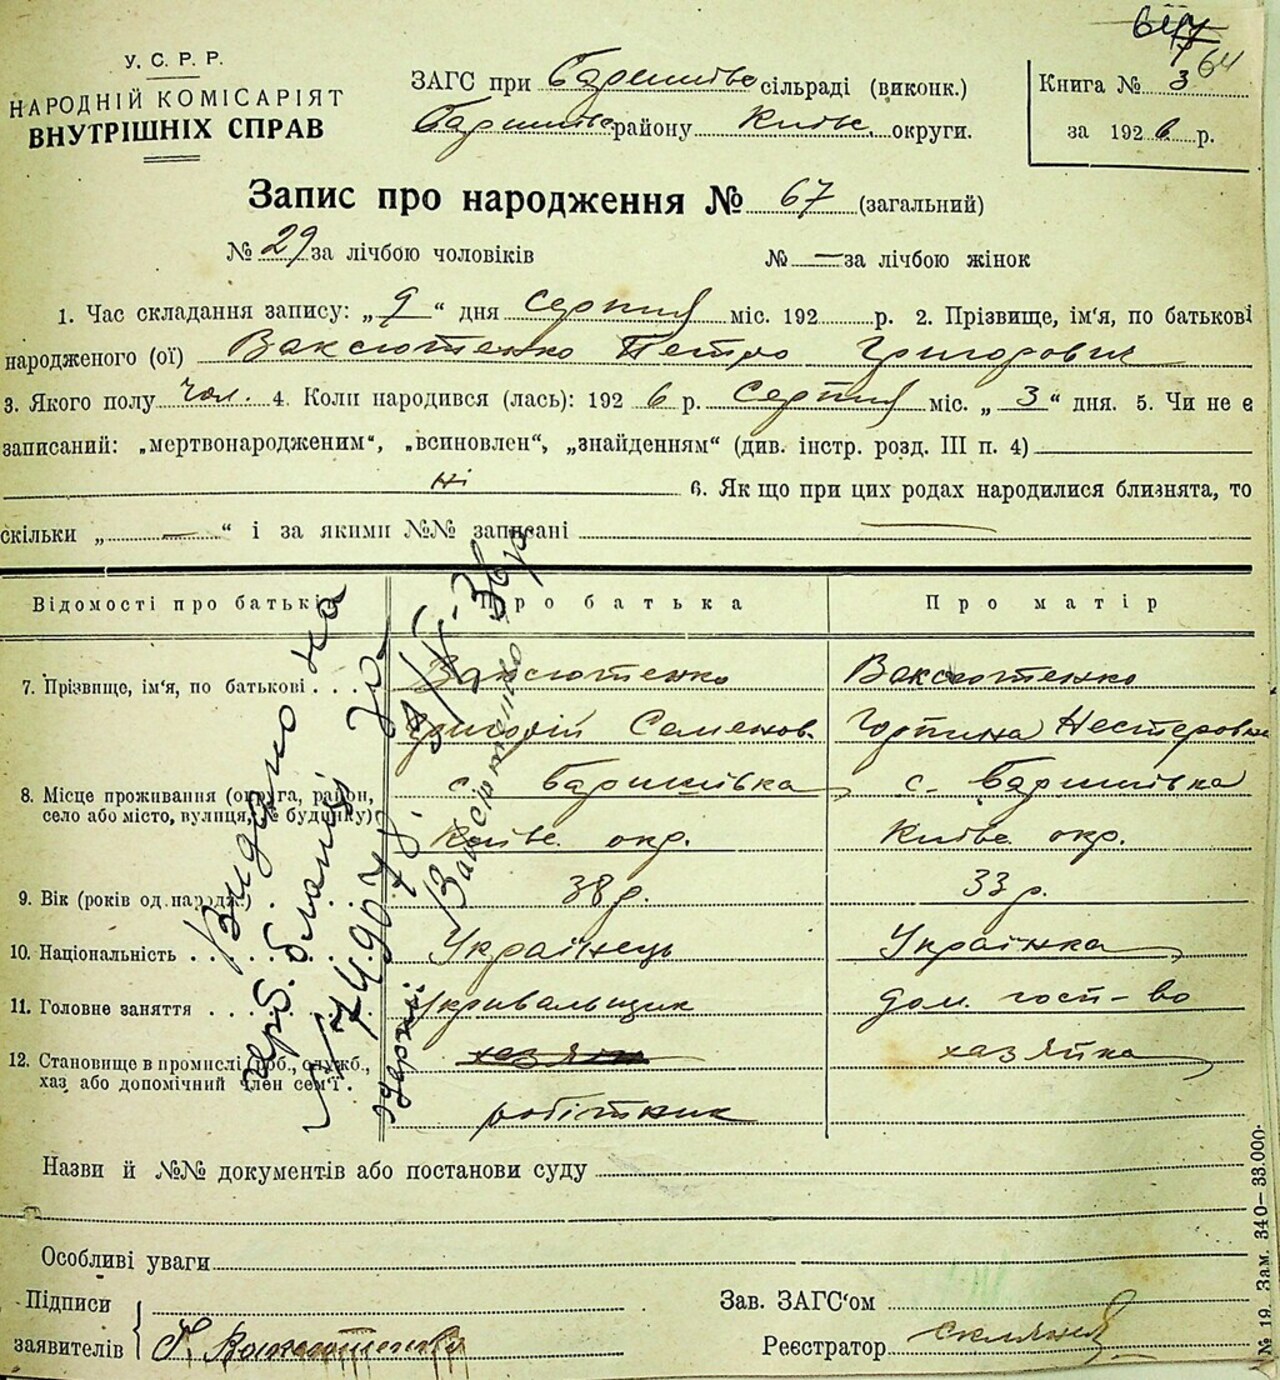 647
64
У. С. Р. Р.
НАРОДНІЙ КОМІСАРІЯТ
ВНУТРІШНІХ СПРАВ
ЗАГС при Баришівс сільраді (виконк.)
Баришівс. району Київс. округи.
Книга № 3
за 1926 р.
Запис про народження № 67 (загальний)
№ 29 за лічбою чоловіків № — за лічбою жінок
1. Час складання запису: „ 9 “ дня Серпня міс. 192 р. 2. Прізвище, ім‘я, по батькові
народженого (ої) Ваксютенко Петро Григорович
3. Якого полу чол. 4. Коли народився (лась): 192 6 р. Серпня міс. „ 3 “ дня. 5. Чи не є
записаний: „мертвонародженим“, „всиновлен“, „знайденням“ (див. інстр. розд. III п. 4)
ні 6. Як що при цих родах народилися близнята, то
скільки „ — “ і за якими №№ записані —
Відомості про батьків Про батька Про матір
7. Прізвище, ім‘я, по батькові . . . . Ваксютенко Ваксютенко
Григорій Семенов. Горпина Нестеровна
8. Місце проживання (округа, район, с. Баришівка с. Баришівка
село або місто, вулиця, № будинку) Київс. окр. Київс. окр.
9. Вік (років од народж.) 38 р. 33 р.
10. Національність . . . Українець Українка
11. Головне заняття . . . . Укривальщик дом. госп-во
12. Становище в промислі (роб., служб., хазяїн хазяйка
хаз або допомічний член сем‘ї . робітник
Видано на
герб. бланці
74907
Назви й №№ документів або постанови суду
Особливі уваги
Підписи
заявителів Г. Ваксютенко
Зав. ЗАГС‘ом
Реєстратор
№ 19. Зам. 340—33.000.